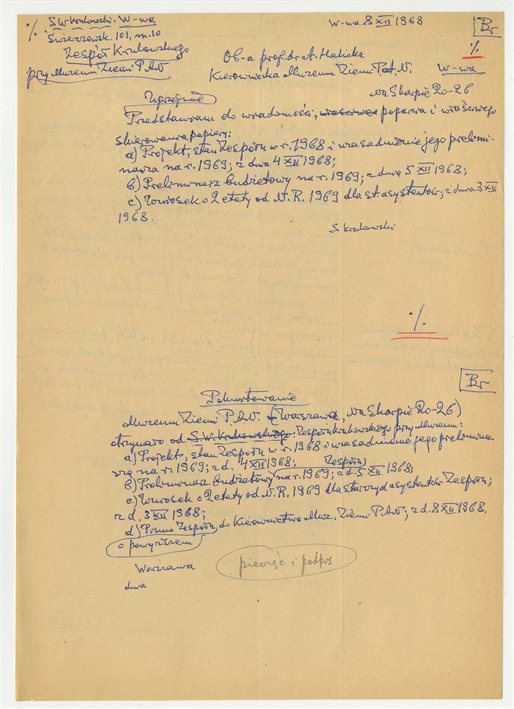 % S W Krukowski. W-wa
W-wa 8 XII 1968
Br
Świerczewsk. 101, m. 10
%
Zespół Krukowskiego
przy Muzeum Ziemi P.A.N.
Ob-a prof. dr A. Halicka
Kierowniczka Muzeum Ziemi P.A.N.
W-wa
Na Skarpie 20-26
Uprzejmie
Przedstawiam do wiadomości, poparcia i właściwego
skierowania papiery:
a) Projekt, stan Zespołu w r. 1968 i uzasadnienie jego prelimi-
narza na r. 1969; z dnia 4 XII 1968;
b) Preliminarz budżetowy na r. 1969; z dnia 5 XII 1968;
c) Wniosek o 2 etaty od N.R. 1969 dla st. asystentów; z dnia 3 XII
1968.
S Krukowski
%
Br
Pokwitowanie
Muzeum Ziemi P.A.N. (Warszawa, Na Skarpie 20-26)
otrzymało od S. W. Krukowskiego Zespołu Krukowskiego przy Muzeum:
a) Projekt, stan Zespołu w r. 1968 i uzasadnienie jego prelimina-
rza na r. 1969; z d. 4 XII 1968; Zespołu
b) Preliminarz budżetowy na r. 1969; z d. 5 XII 1968;
c) Wniosek o 2 etaty od N.R. 1969 dla starszych asystentów Zespołu;
z d. 3 XII 1968;
d) Pismo Zespołu do Kierownictwa Muz. Ziemi P.A.N.; z d. 8 XII 1968.
o powyższem
Warszawa
pieczęć i podpis
dnia